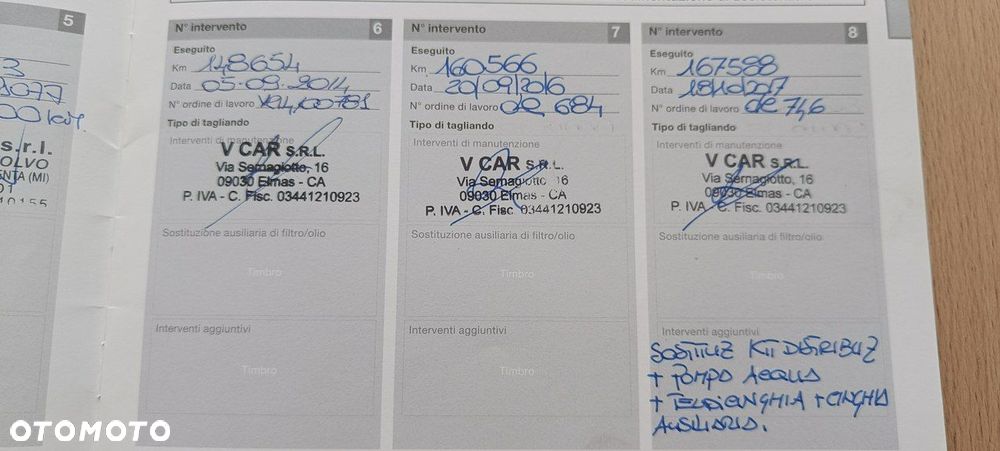 5
3
s.r.l.
OLVO
N° intervento 6
Eseguito
Km 148654
Data 05-09-2014
N° ordine di lavoro
Tipo di tagliando
Interventi di manutenzione
V CAR S.R.L.
Via Sernagiotto, 16
09030 Elmas - CA
P. IVA - C. Fisc. 03441210923
Sostituzione ausiliaria di filtro/olio
Timbro
Interventi aggiuntivi
Timbro
N° intervento 7
Eseguito
Km 160566
Data 20/09/2016
N° ordine di lavoro de 684
Tipo di tagliando
Interventi di manutenzione
V CAR S.R.L.
Via Sernagiotto, 16
09030 Elmas - CA
P. IVA - C. Fisc. 03441210923
Sostituzione ausiliaria di filtro/olio
Timbro
Interventi aggiuntivi
Timbro
N° intervento 8
Eseguito
Km 167588
Data
N° ordine di lavoro de 746
Tipo di tagliando
Interventi di manutenzione
V CAR S.R.L.
Via Sernagiotto, 16
09030 Elmas - CA
P. IVA - C. Fisc. 03441210923
Sostituzione ausiliaria di filtro/olio
Timbro
Interventi aggiuntivi
SOSTITUZ KIT DISTRIBUZ
+ POMPA ACQUA
+ TENDICINGHIA + CINGHIA
AUSILIARIA.
OTOMOTO